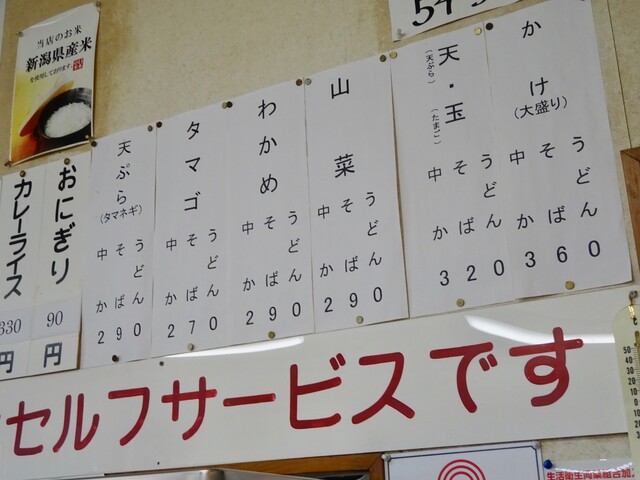 当店のお米
新潟県産米
を使用しております。
かけ
(大盛り)
うどん
そば
中か
360
天・玉
(天ぷら)
(たまご)
うどん
そば
中か
320
山菜
うどん
そば
中か
290
わかめ
うどん
そば
中か
290
タマゴ
うどん
そば
中か
270
天ぷら
(タマネギ)
うどん
そば
中か
290
おにぎり
90
円
カレーライス
330
円
セルフサービスです
50
40
30
20
10